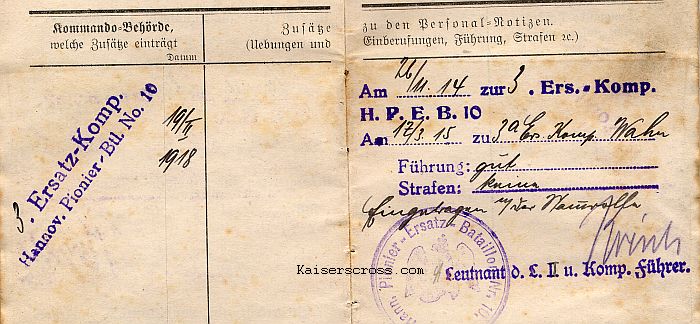 Kommando-Behörde,
welche Zusätze einträgt
Datum
Zusätze
(Uebungen und
zu den Personal-Notizen.
Einberufungen, Führung, Strafen ꝛc.)
3. Ersatz-Komp.
Hannov. Pionier-Btl. No. 10
1918
Am 26/11. 14 zur 3. Ers.-Komp.
H. P. E. B. 10
Am 12/3. 15 zu Komp. Wahn
Führung: gut
Strafen: keine
Eingetragen
Hann. Pionier-Ersatz-Bataillon Nr. 10.
Leutnant d. L. II u. Komp. Führer.
Kaiserscross.com